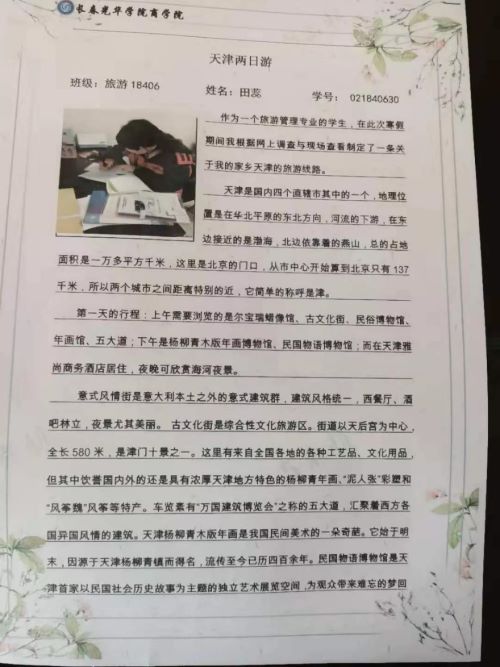 长春光华学院商学院
天津两日游
班级：旅游 18406
姓名：田蕊
学号： 021840630
作为一个旅游管理专业的学生，在此次寒假
期间我根据网上调查与现场查看制定了一条关
于我的家乡天津的旅游线路。
天津是国内四个直辖市其中的一个，地理位
置是在华北平原的东北方向，河流的下游，在东
边接近的是渤海，北边依靠着的燕山，总的占地
面积是一万多平方千米，这里是北京的门口，从市中心开始算到北京只有 137
千米，所以两个城市之间距离特别的近，它简单的称呼是津。
第一天的行程：上午需要浏览的是尔宝瑞蜡像馆、古文化街、民俗博物馆、
年画馆、五大道；下午是杨柳青木版年画博物馆、民国物语博物馆；而在天津雅
尚商务酒店居住，夜晚可欣赏海河夜景。
意式风情街是意大利本土之外的意式建筑群，建筑风格统一，西餐厅、酒
吧林立，夜景尤其美丽。 古文化街是综合性文化旅游区。街道以天后宫为中心，
全长 580 米，是津门十景之一。这里有来自全国各地的各种工艺品、文化用品，
但其中饮誉国内外的还是具有浓厚天津地方特色的杨柳青年画、“泥人张”彩塑和
“风筝魏”风筝等特产。车览素有“万国建筑博览会”之称的五大道，汇聚着西方各
国异国风情的建筑。天津杨柳青木版年画是我国民间美术的一朵奇葩。它始于明
末，因源于天津杨柳青镇而得名，流传至今已历四百余年。民国物语博物馆是天
津首家以民国社会历史故事为主题的独立艺术展览空间，为观众带来难忘的梦回